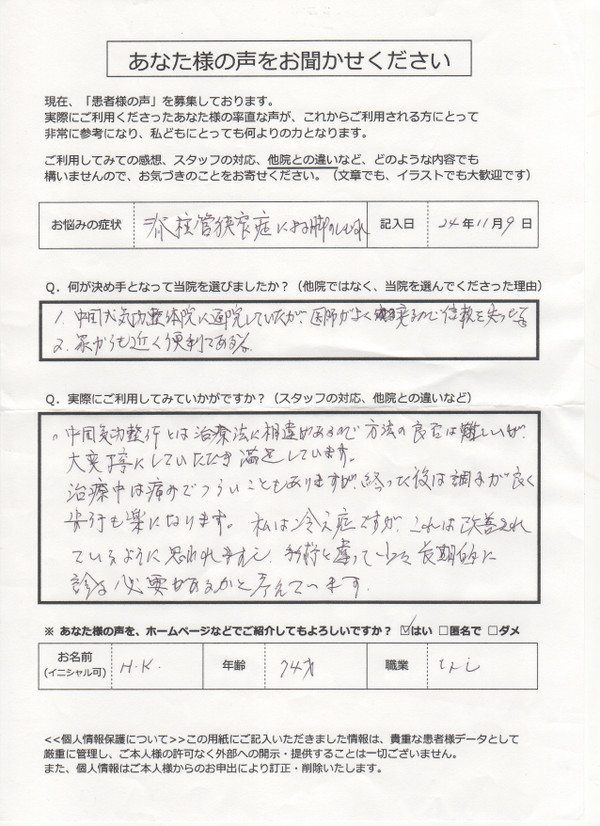 あなた様の声をお聞かせください
現在、「患者様の声」を募集しております。
実際にご利用くださったあなた様の率直な声が、これからご利用される方にとって
非常に参考になり、私どもにとっても何よりの力となります。
ご利用してみての感想、スタッフの対応、他院との違いなど、どのような内容でも
構いませんので、お気づきのことをお寄せください。（文章でも、イラストでも大歓迎です）
お悩みの症状 脊柱管狭窄症による脚のしびれ 記入日 24年11月9日
Q. 何が決め手となって当院を選びましたか？（他院ではなく、当院を選んでくださった理由）
1. 中国気功整体院に通院していたが、医師がよく変るので信頼を失った
2. 家からも近く便利である。
Q. 実際にご利用してみていかがですか？（スタッフの対応、他院との違いなど）
。中国気功整体とは治療法に相違があるので方法の良否は難しいが、
大変丁寧にしていただき満足しています。
治療中は痛みでつらいこともありますが、終った後は調子が良く
歩行も楽になります。私は冷え症ですが、これは改善され
ているように思われますし、長期的に
診る必要があるかと考えています。
※ あなた様の声を、ホームページなどでご紹介してもよろしいですか？ ☑はい □匿名で □ダメ
お名前 H.K. 年齢 74才 職業 なし
(イニシャル可)
<<個人情報保護について>>この用紙にご記入いただきました情報は、貴重な患者様データとして
厳重に管理し、ご本人様の許可なく外部への開示・提供することは一切ございません。
また、個人情報はご本人様からのお申出により訂正・削除いたします。